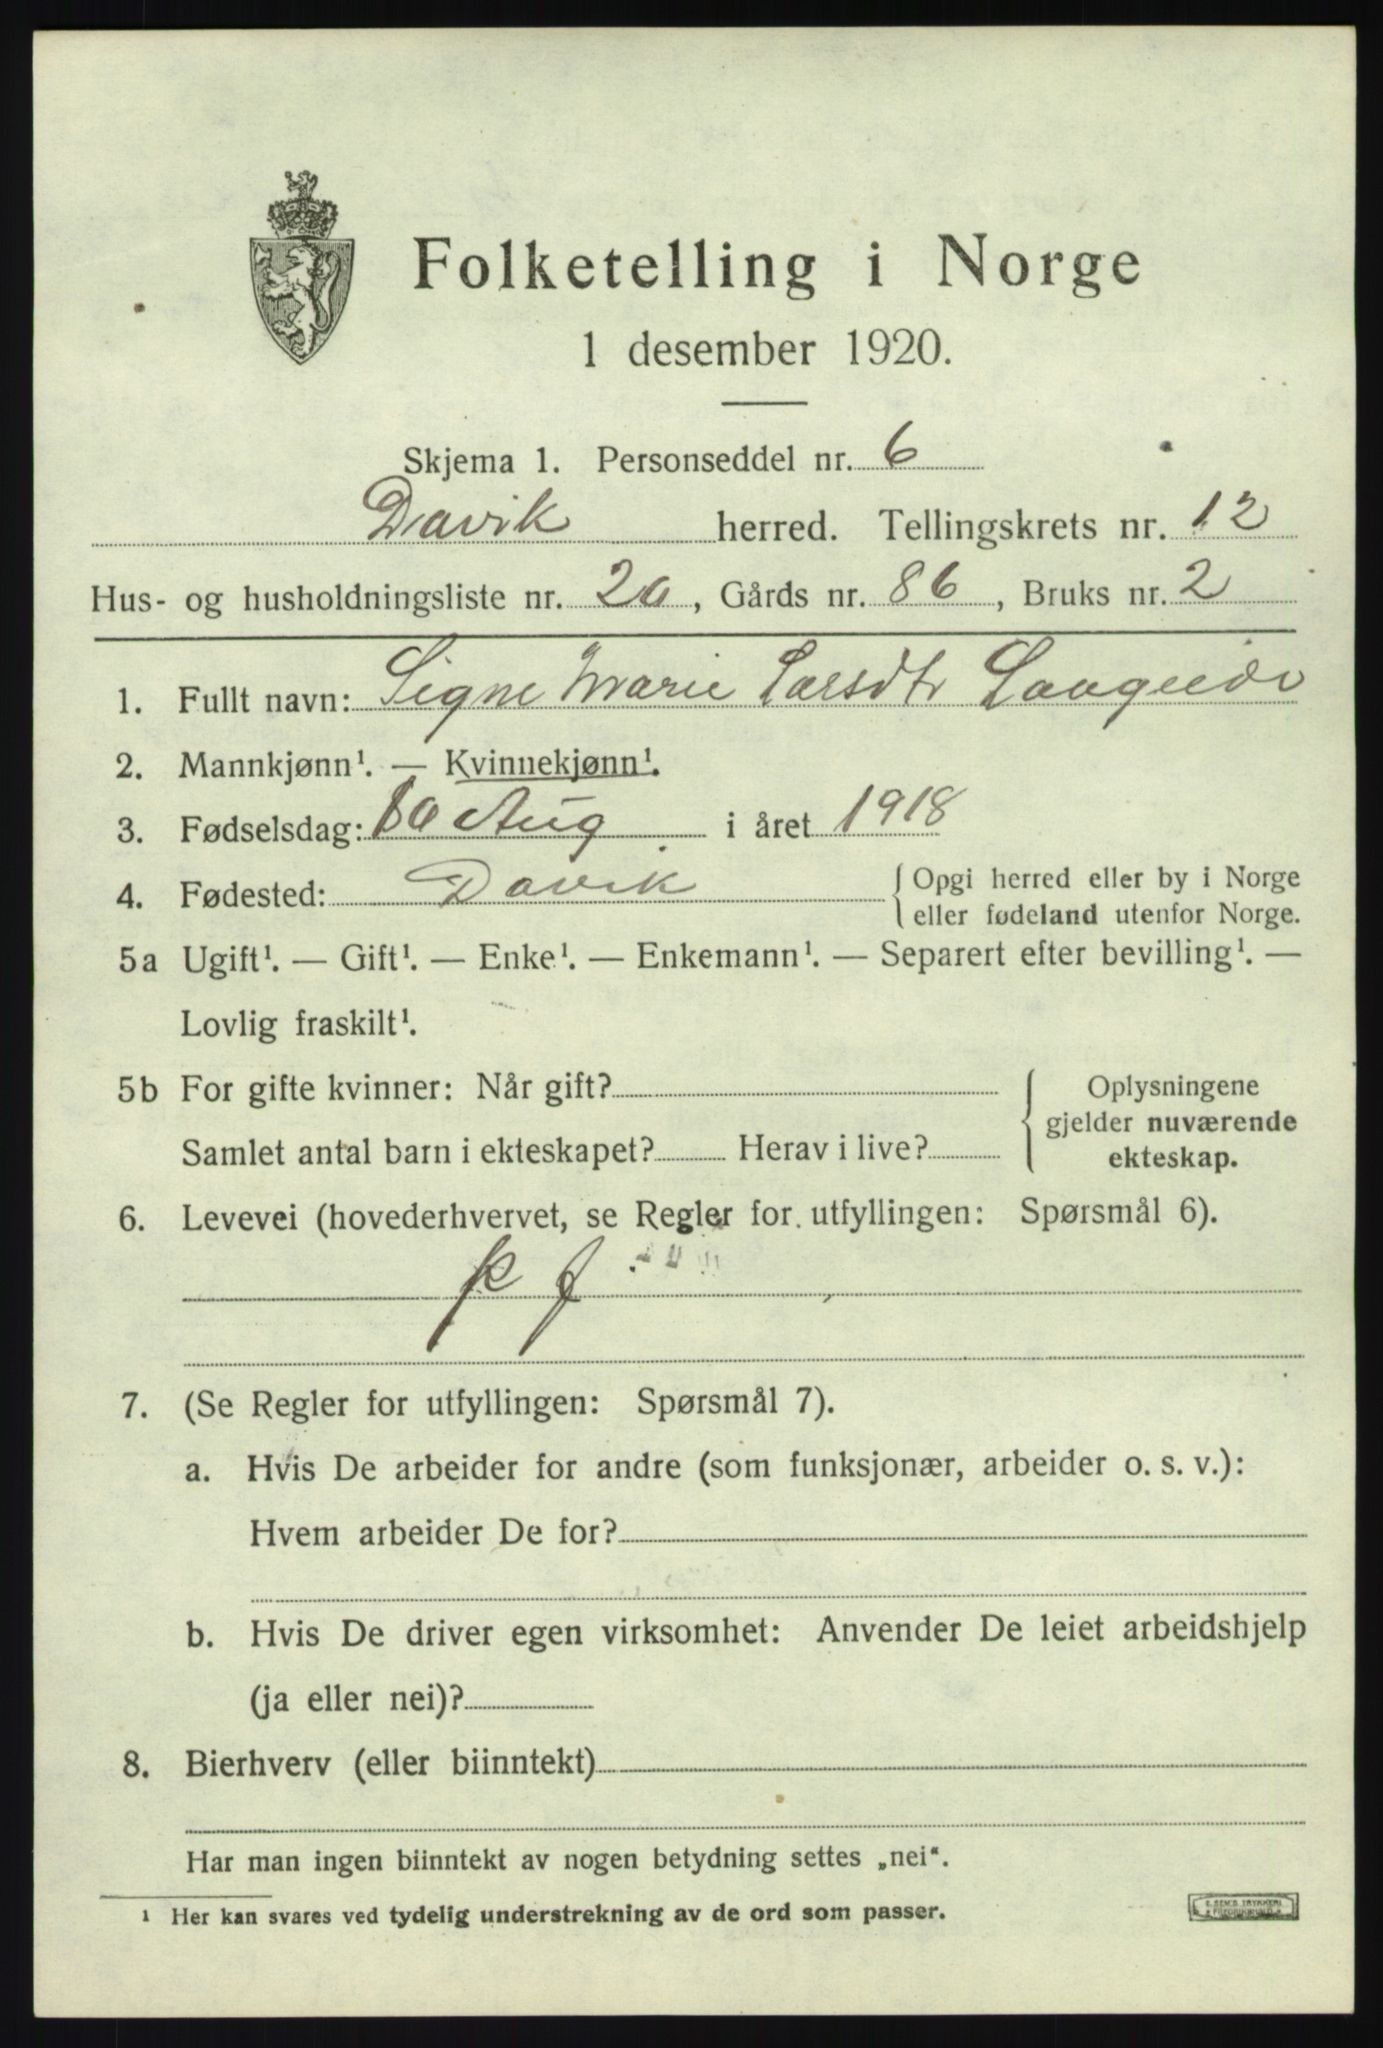 Folketelling i Norge
1 desember 1920.
Skjema 1. Personseddel nr. 6
Davik herred. Tellingskrets nr. 12
Hus- og husholdningsliste nr. 20, Gårds nr. 86, Bruks nr. 2
1. Fullt navn: Signe Marie Larsdtr
2. Mannkjønn¹. — Kvinnekjønn¹.
3. Fødselsdag: 10 Aug i året 1918
4. Fødested: Davik { Opgi herred eller by i Norge
eller fødeland utenfor Norge.
5a Ugift¹. — Gift¹. — Enke¹. — Enkemann¹. — Separert efter bevilling¹. —
Lovlig fraskilt¹.
5b For gifte kvinner: Når gift?
Samlet antal barn i ekteskapet? Herav i live?
Oplysningene
gjelder nuværende
ekteskap.
6. Levevei (hovederhvervet, se Regler for utfyllingen: Spørsmål 6).
7. (Se Regler for utfyllingen: Spørsmål 7).
a. Hvis De arbeider for andre (som funksjonær, arbeider o. s. v.):
Hvem arbeider De for?
b. Hvis De driver egen virksomhet: Anvender De leiet arbeidshjelp
(ja eller nei)?
8. Bierhverv (eller biinntekt)
Har man ingen biinntekt av nogen betydning settes „nei“.
¹ Her kan svares ved tydelig understrekning av de ord som passer.